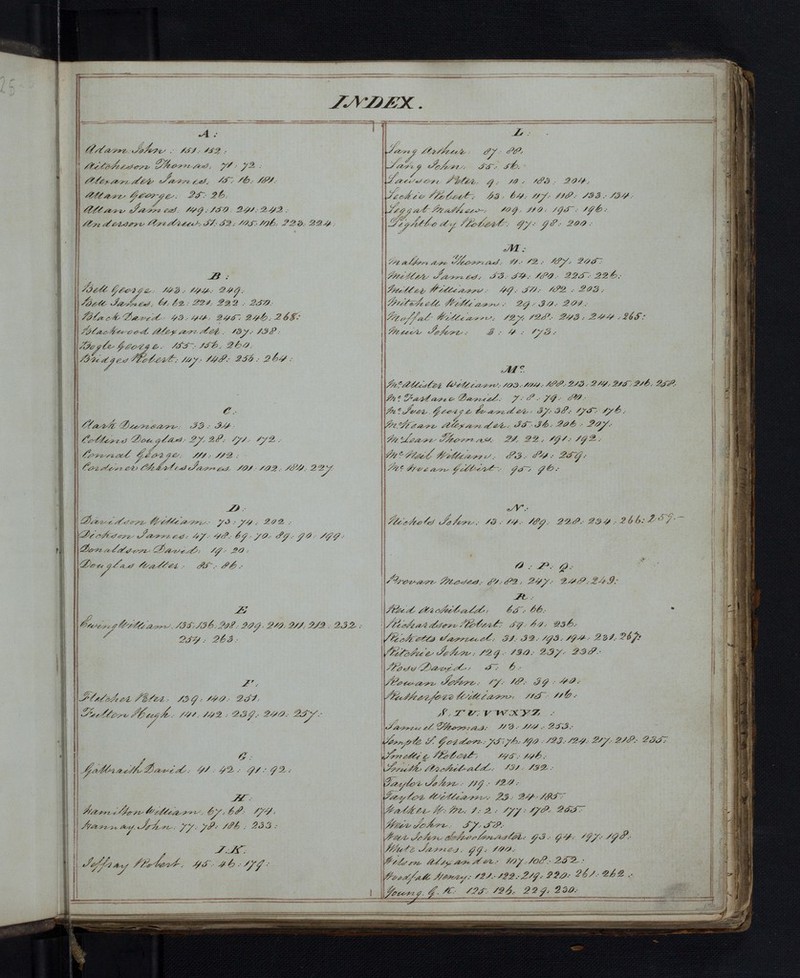 INDEX.
A:
Adam John : 151: 152:
Aitcheson Thomas, 71: 72:
Alexander James, 15: 16: 181:
Allan George: 25: 26:
Allan James 149: 150: 241: 242:
Anderson Andrew: 51: 52: 105: 106: 223: 224:
B:
Bell George 143: 144: 249:
Bell James, 61. 62: 221. 222 : 250:
Black David : 43: 44: 245: 246: 268:
Blackwood Alexander. 137: 138:
Bogle George: 155: 156: 260:
Bridges Robert: 147: 148: 256: 264:
C:
Clark Duncan: 33: 34:
Collins Douglas: 27: 28: 171: 172:
Connal George 111: 112:
Cordiner Charles James 101: 102: 184: 227
D:
Davidson William: 73: 74: 202:
Dickson James: 47: 48: 69: 70: 89: 90: 199:
Donaldson David: 19: 20:
Douglas Walter: 85: 86:
E
Ewing William: 135: 136: 208: 209: 210: 211: 212: 232:
254: 263:
F.
Fletcher Peter: 139: 140: 251.
Fulton Hugh: 141: 142: 239: 240: 257:
G:
Galbraith David: 41: 42: 91: 92:
H:
Hamilton William: 67: 68: 174.
Hannay John: 77: 78: 186: 233:
I.K.
Jeffray Robert: 45: 46: 179:
L:
Lang Arthur 87: 88:
Lang John: 55: 56:
Lawson Peter. 9: 10: 183: 204:
Leckie Robert: 63: 64: 117: 118: 133: 134:
Leggat Mathew: 109: 110: 195: 196:
Lightbody Robert: 97: 98: 200:
M:
Maltman Thomas. 11: 12: 187: 205:
Miller James: 53: 54: 180: 225: 226:
Miller William: 49: 50: 182: 203:
Mitchell William: 29: 30: 201:
Moffat William: 127: 128: 243: 244: 265:
Muir John: 3: 4: 173:
Mc.
McAllister William: 103: 104: 188: 213: 214: 215: 216: 258.
McFarlane Daniel: 7: 8: 79: 80:
McIver George Evander: 37: 38: 175: 176:
McKean Alexander: 35: 36: 206: 207:
McLean Thomas 21. 22: 191: 192:
McNeil William: 83: 84: 259:
McKecan Gilbert: 95: 96:
N:
Nichols John: 13: 14: 189: 228: 234: 266: 259:-
O: P: Q:
Provan Moses: 81. 82: 247: 248: 249:
R:
Reid Archibald: 65: 66:
Richardson Robert: 59: 60: 236:
Ricketts Samuel: 31: 32: 193: 194: 231: 267:
Ritchie John: 129: 130: 237: 238:
Ross David: 5: 6:
Rowan John: 17: 18: 39: 40:
Rutherford William: 115: 116:
S. T U. V W X Y Z. :
Samuel Thomas: 113: 114: 253:
Semple S. Gordon: 75: 76: 190: 123: 124: 217: 218: 235:
Smellie Robert: 145: 146:
Smith Archibald: 131: 132:
Taylor John: 119: 120:
Taylor William: 23: 24: 185:
Walker W. M. 1: 2: 177: 178: 255:
Weir John: 57: 58:
Weir John Schoolmaster: 93: 94: 197: 198:
White James: 99: 100:
Wilson Alexander: 107: 108: 252:
Woodfall Henry: 121: 122: 219: 220: 261: 262:
Young. G. K: 125: 126: 229: 230: